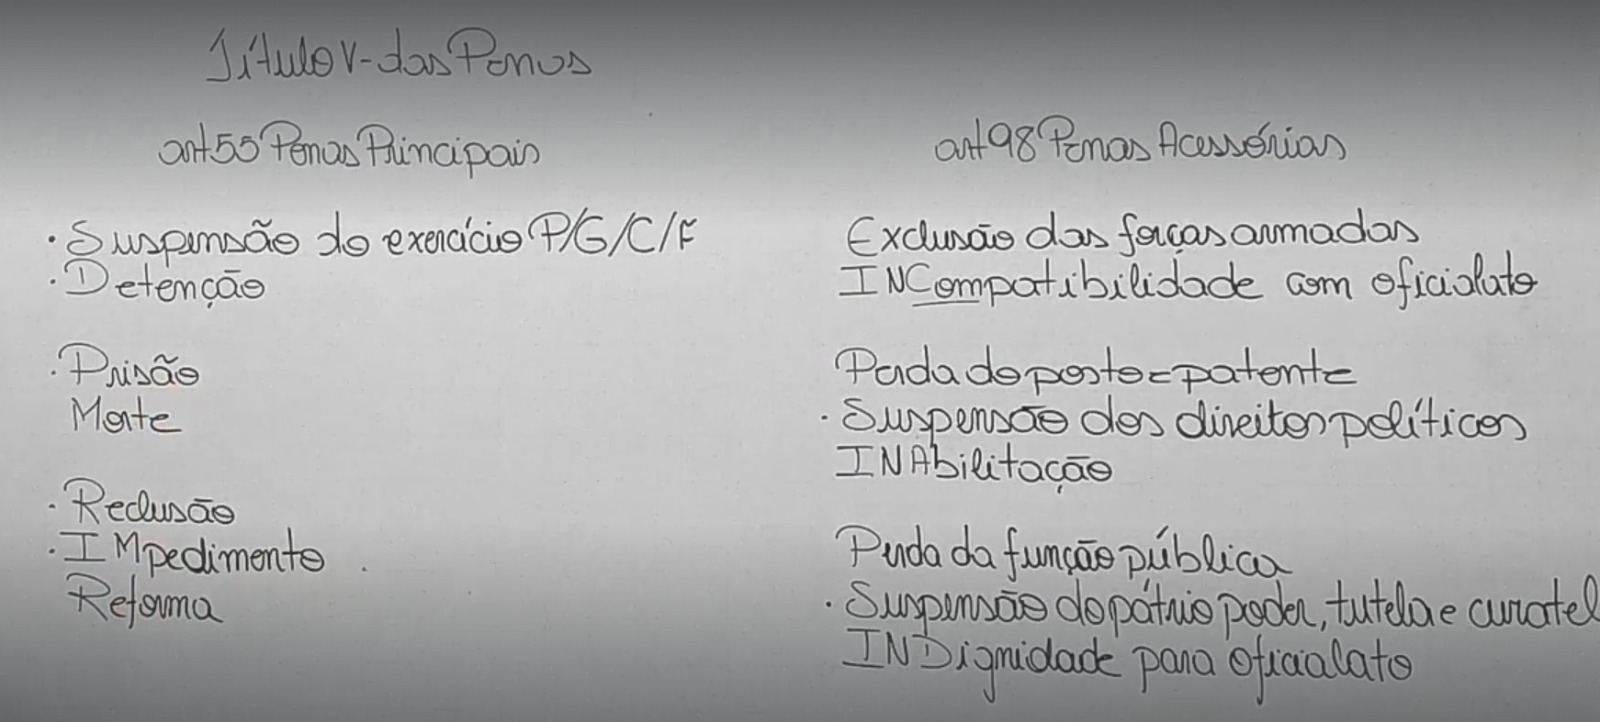 Título V - das Penas
art 55 Penas Principais
• Suspensão do exercício P/G/C/F
• Detenção
• Prisão
Morte
• Reclusão
• IMpedimento .
Reforma
art 98 Penas Acessórias
Exclusão das forças armadas
INCompatibilidade com oficialato
Perda do posto e patente
• Suspensão dos direitos políticos
INAbilitação
Perda da função pública
• Suspensão do pátrio poder, tutela e curatel
INDignidade para oficialato